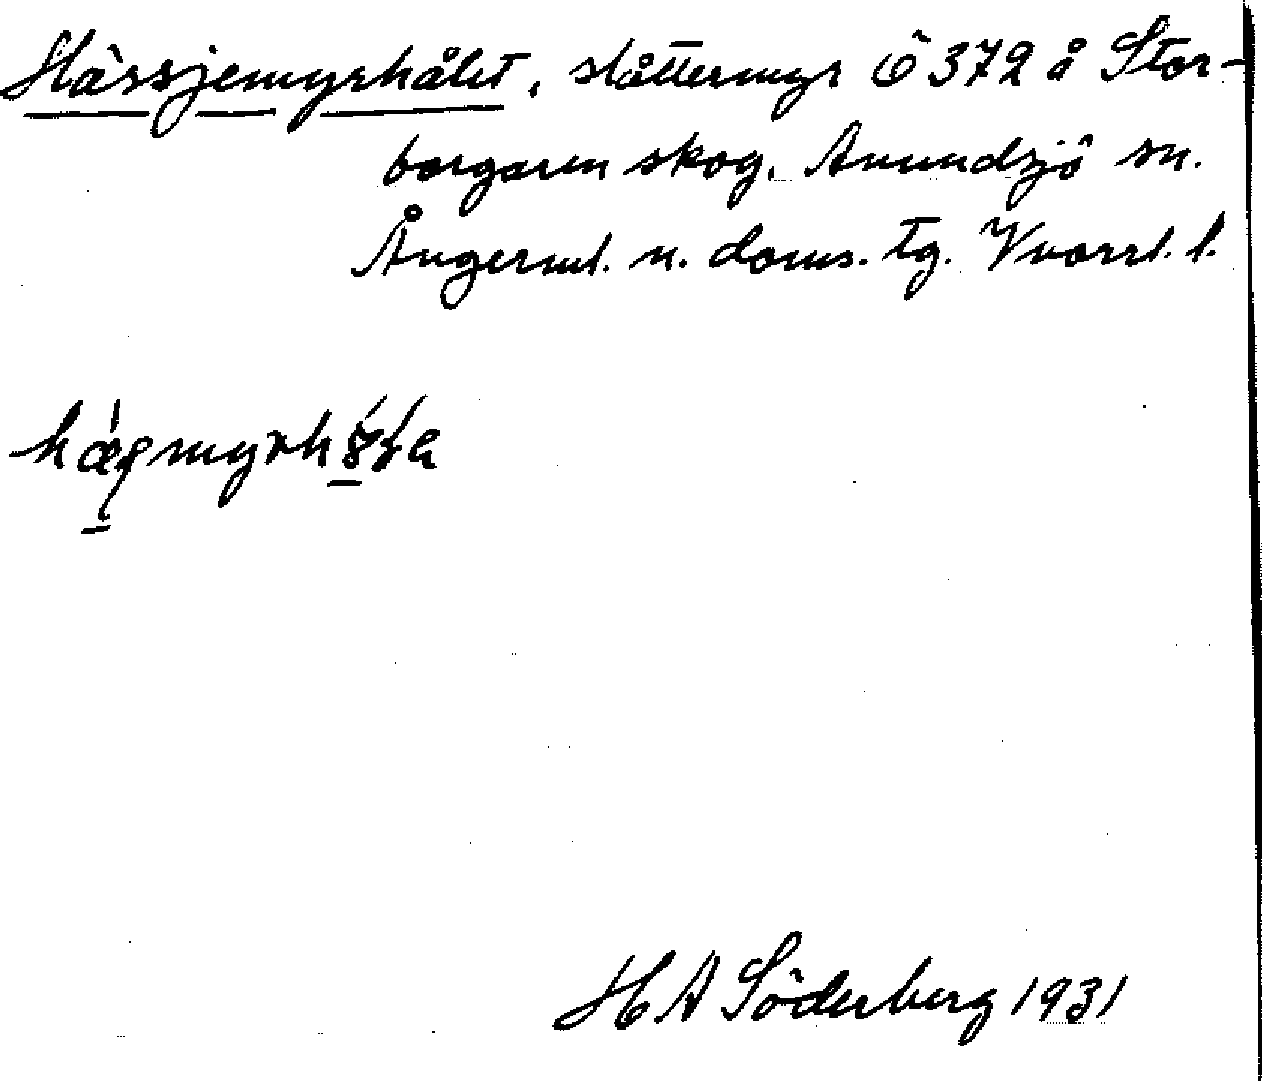 Hässjemyrhålet, slåttermyr Ö 372 å Stor-
borgaren skog. Anundsjö sn.
Ångerml. n. doms. tg. Västrl. l.
HA Söderberg 1931